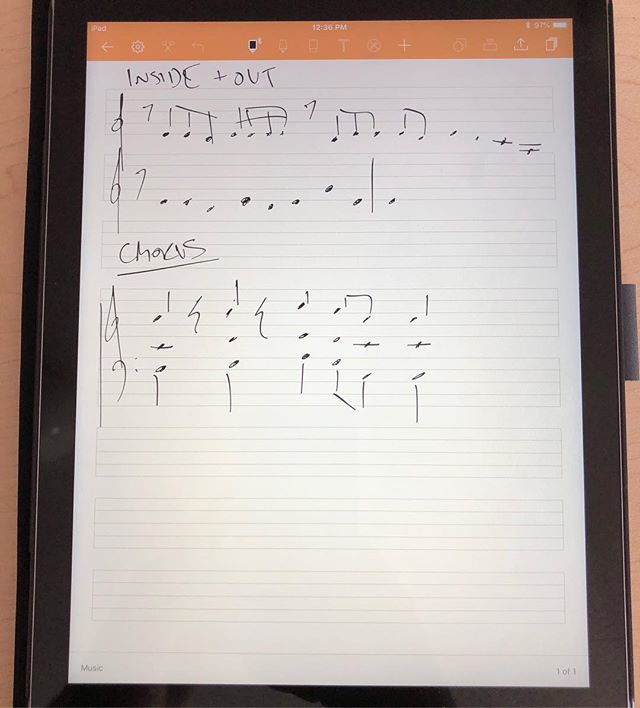 iPad 12:36 PM 97%
T
INSIDE + OUT
CHORUS
Music 1 of 1